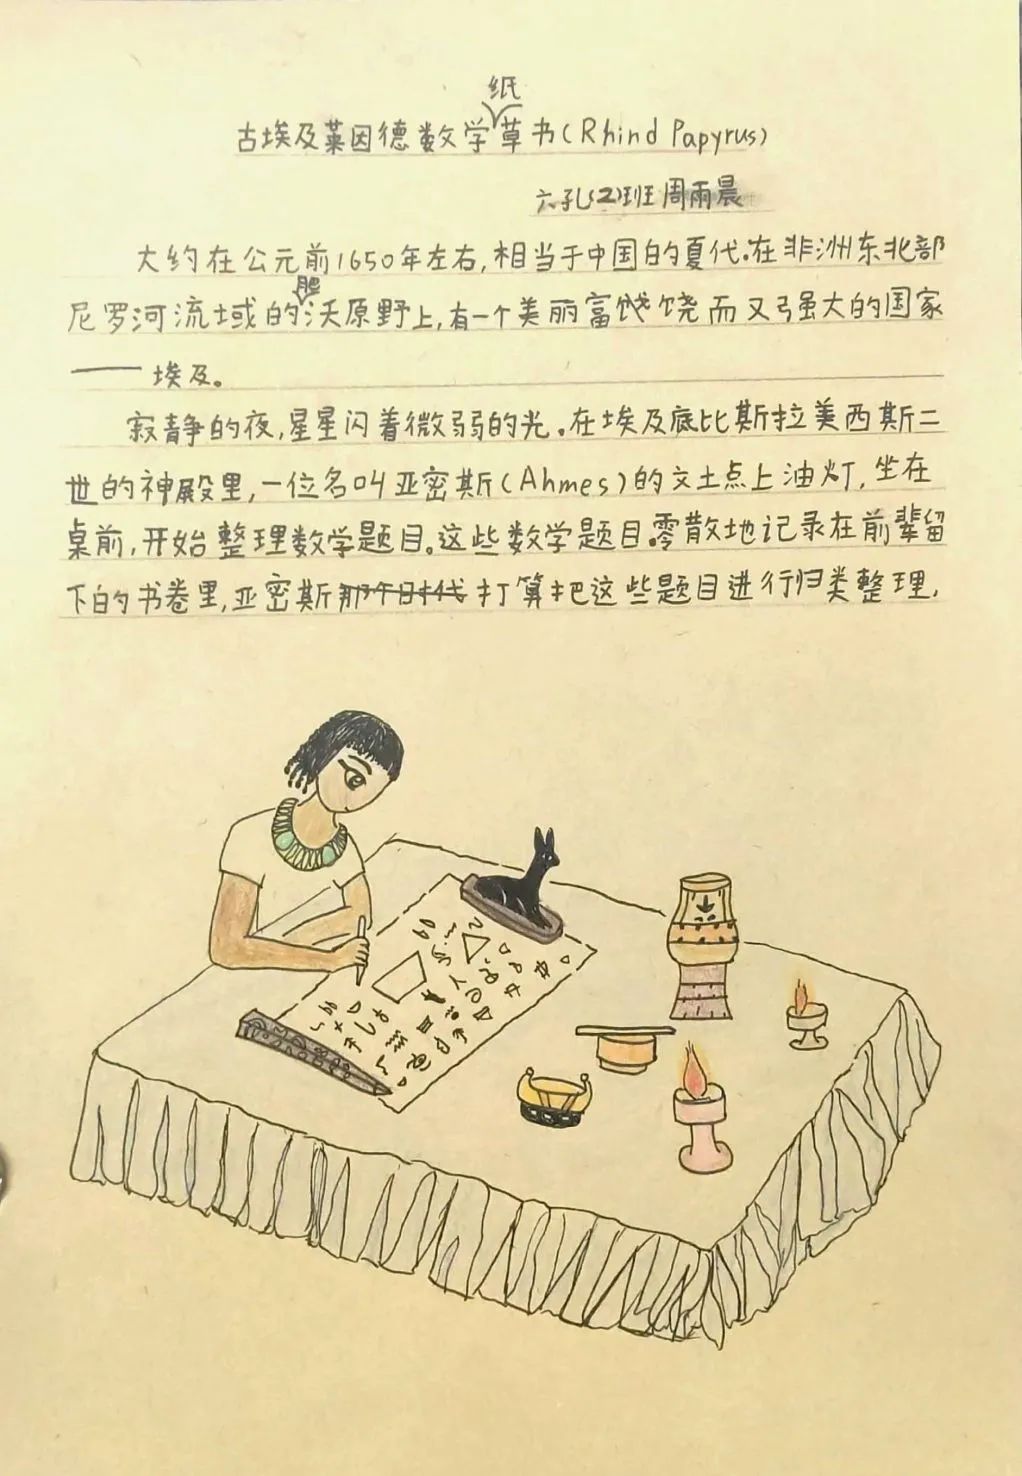 古埃及莱因德数学纸草书(Rhind Papyrus)
六(2)班 周雨晨
大约在公元前1650年左右,相当于中国的夏代.在非洲东北部
尼罗河流域的肥沃原野上,有一个美丽富饶而又强大的国家
——埃及。
寂静的夜,星星闪着微弱的光.在埃及底比斯拉美西斯二
世的神殿里,一位名叫亚密斯(Ahmes)的文士点上油灯,坐在
桌前,开始整理数学题目。这些数学题目零散地记录在前辈留
下的书卷里,亚密斯打算把这些题目进行归类整理,